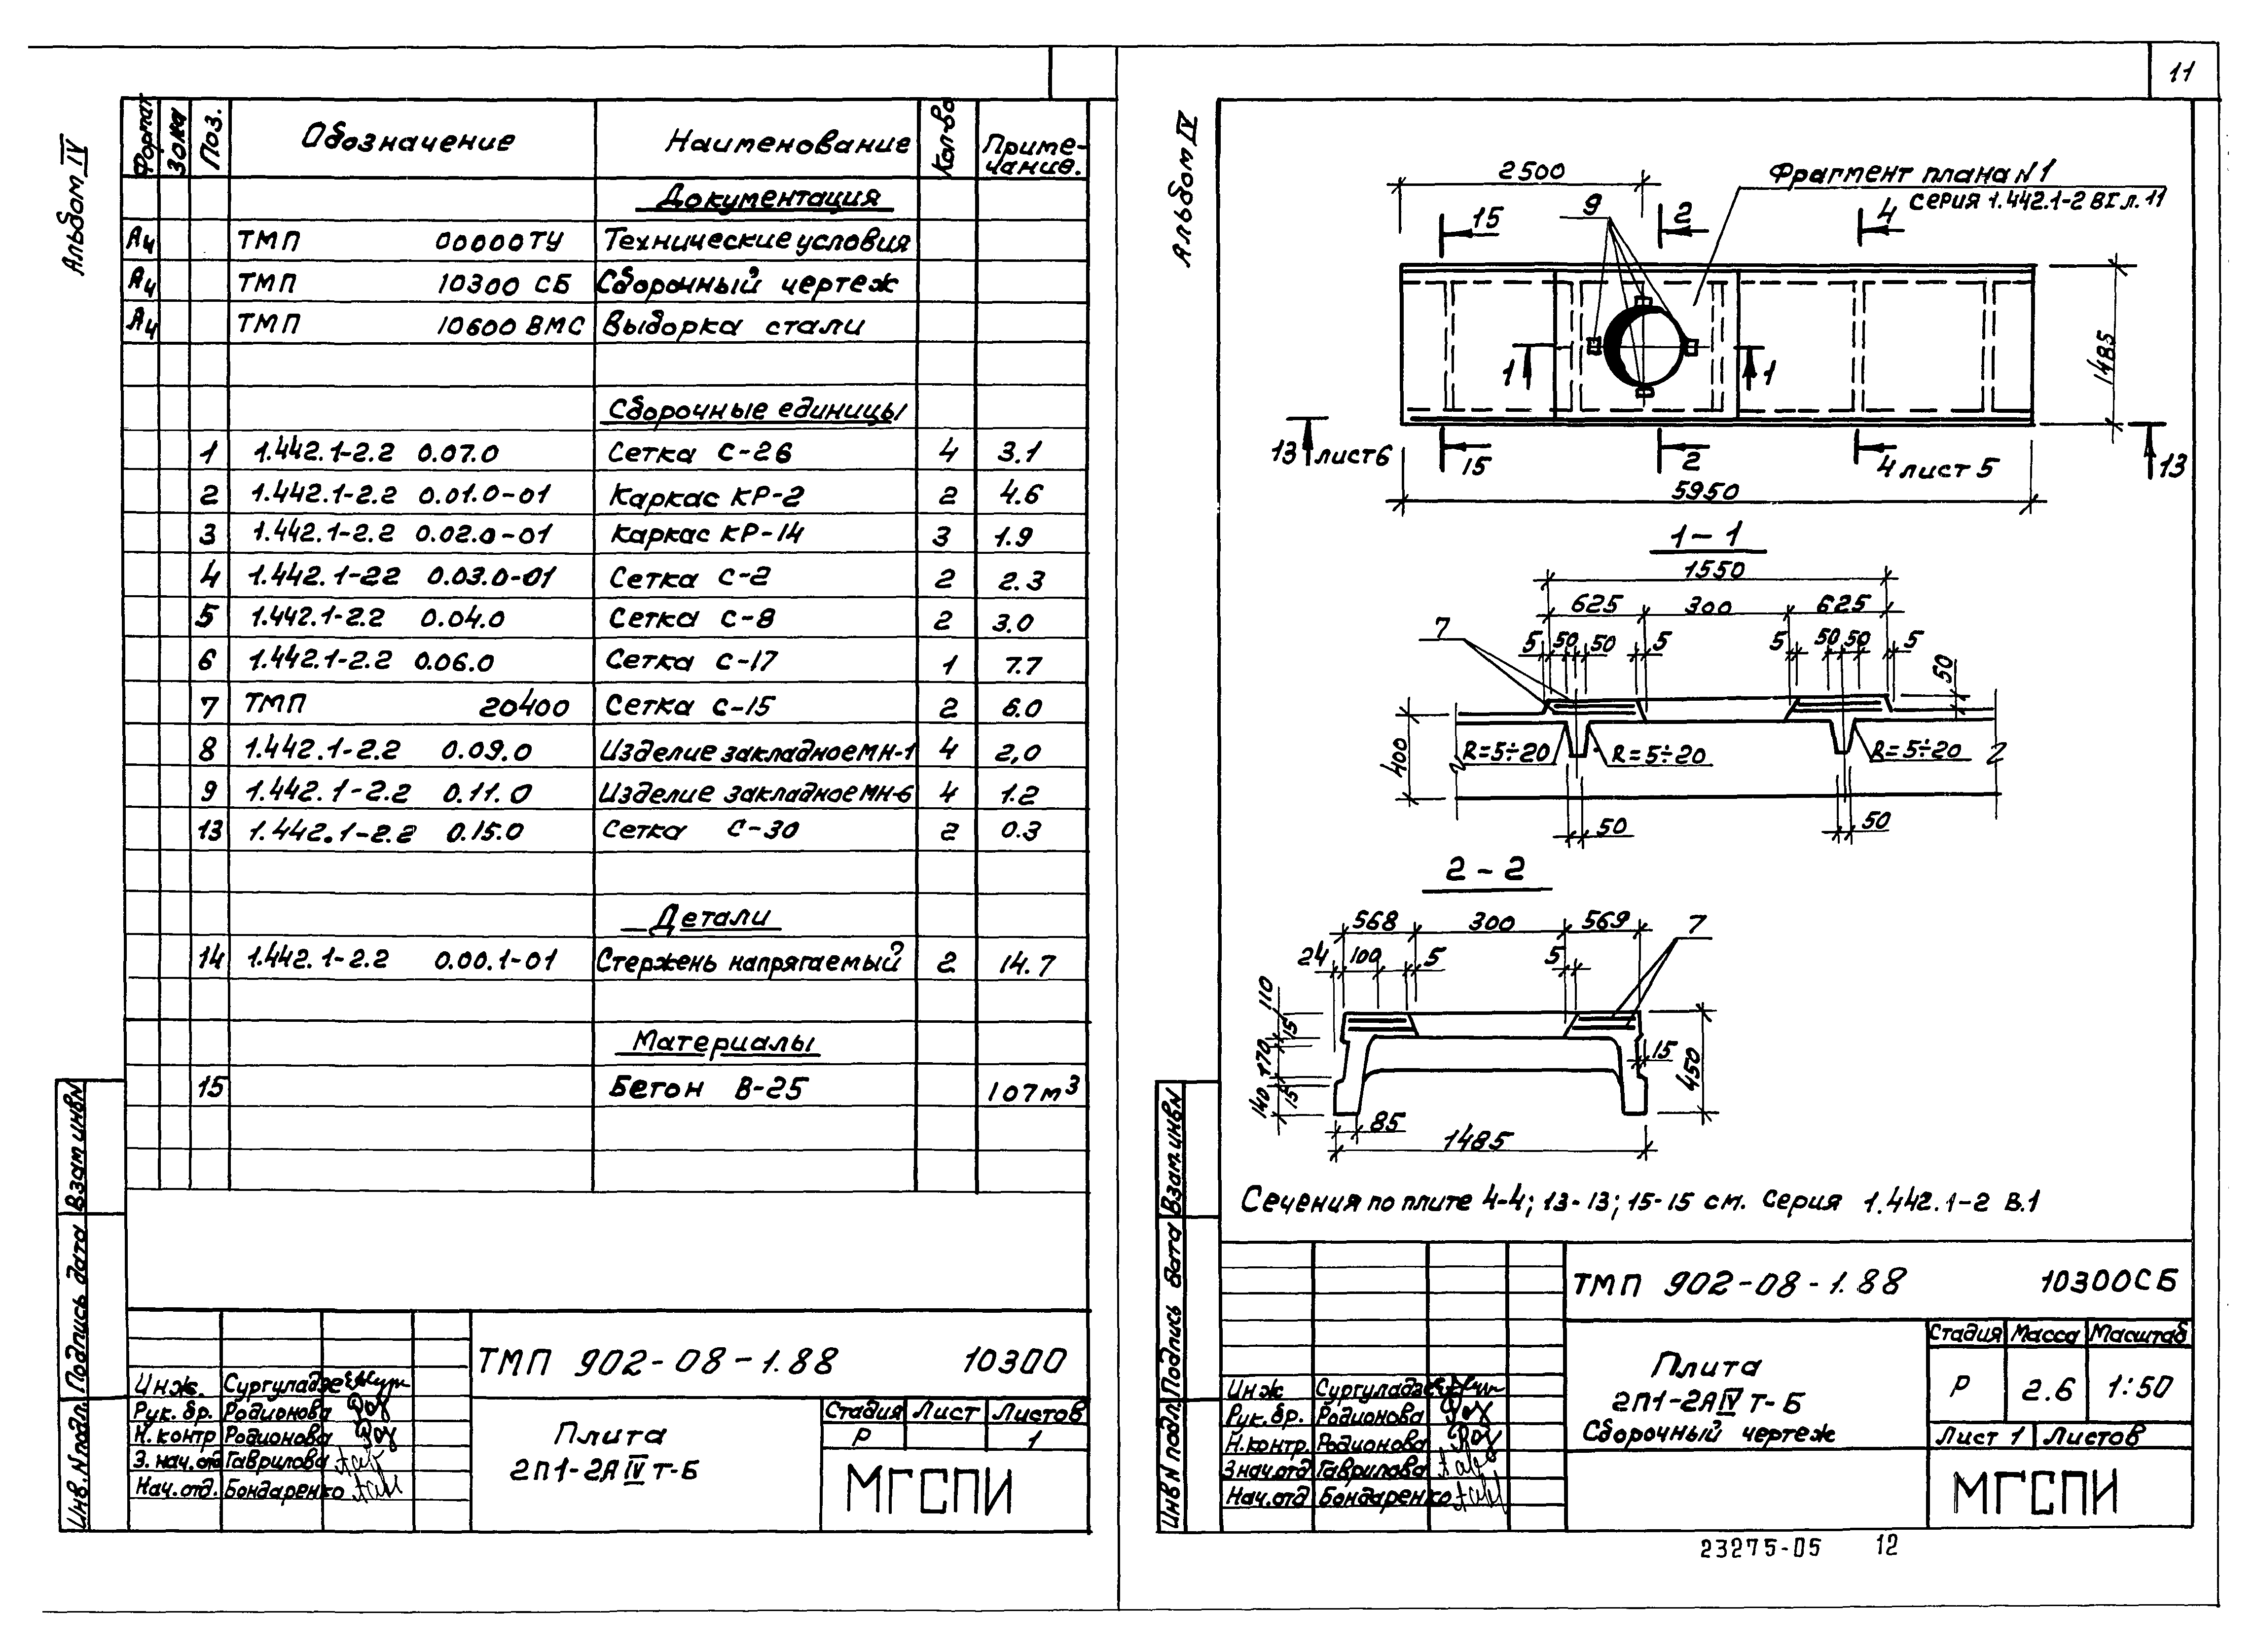 11
Альбом IV
Формат Зона Поз. Обозначение Наименование Кол-во Примечание.
Документация
А4 ТМП 00000ТУ Технические условия
А4 ТМП 10300 СБ Сборочный чертеж
А4 ТМП 10600 ВМС Выборка стали
Сборочные единицы
1 1.442.1-2.2 0.07.0 Сетка С-26 4 3.1
2 1.442.1-2.2 0.01.0-01 Каркас КР-2 2 4.6
3 1.442.1-2.2 0.02.0-01 Каркас КР-14 3 1.9
4 1.442.1-22 0.03.0-01 Сетка С-2 2 2.3
5 1.442.1-2.2 0.04.0 Сетка С-8 2 3.0
6 1.442.1-2.2 0.06.0 Сетка С-17 1 7.7
7 ТМП 20400 Сетка С-15 2 6.0
8 1.442.1-2.2 0.09.0 Изделие закладное МН-1 4 2,0
9 1.442.1-2.2 0.11.0 Изделие закладное МН-6 4 1.2
13 1.442.1-2.2 0.15.0 Сетка С-30 2 0.3
Детали
14 1.442.1-2.2 0.00.1-01 Стержень напрягаемый 2 14.7
Материалы
15 Бетон В-25 107м³
Инв. N подл. Подпись дата Взам инвN
ТМП 902-08-1.88 10300
Инж. Сургуладзе
Рук. бр. Родионова
Н. контр Родионова
З. нач. отд Гаврилова
Нач. отд. Бондаренко
Плита
2П1-2АIV Т-Б
Стадия Лист Листов
Р 1
МГСПИ
Альбом IV
2500
Фрагмент плана N1
серия 1.442.1-2 ВI л. 11
9
15 2 4
1 1
1485
13 лист 6 15 2 4 лист 5 13
5950
1-1
1550
625 300 625
7
5 50 50 5 5 50 50 5
50
400
R=5÷20 R=5÷20 R=5÷20
50 50
2-2
568 300 569 7
24 100 5 5
110
15
170
15
140
15
450
85
1485
Сечения по плите 4-4; 13-13; 15-15 см. серия 1.442.1-2 В.1
Инв N подл. Подпись дата Взам. инвN
ТМП 902-08-1.88 10300СБ
Инж Сургуладзе
Рук. бр. Родионова
Н. контр. Родионова
З нач. отд Гаврилова
Нач. отд Бондаренко
Плита
2П1-2АIV Т-Б
Сборочный чертеж
Стадия Масса Масштаб
Р 2.6 1:50
Лист 1 Листов
МГСПИ
23275-05 12